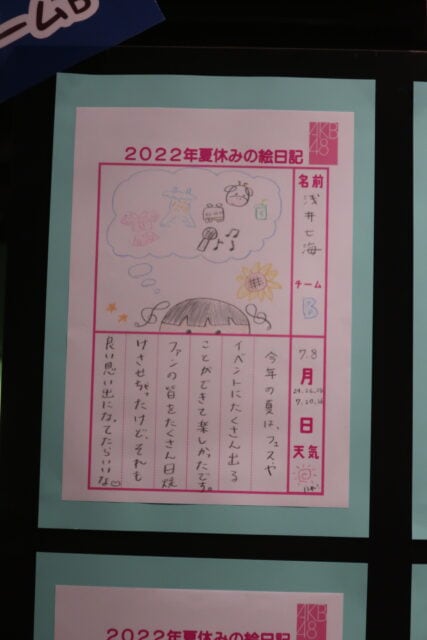 ームB
AKB
48
2022年夏休みの絵日記
名前
浅井七海
チーム
B
7.8
月
日
天気
今年の夏は、フェスや
イベントにたくさん出る
ことができて楽しかったです。
ファンの皆をたくさん日焼
けさせちゃったけど、それも
良い思い出になってたらいいな♡
AKB
48
2022年夏休みの絵日記